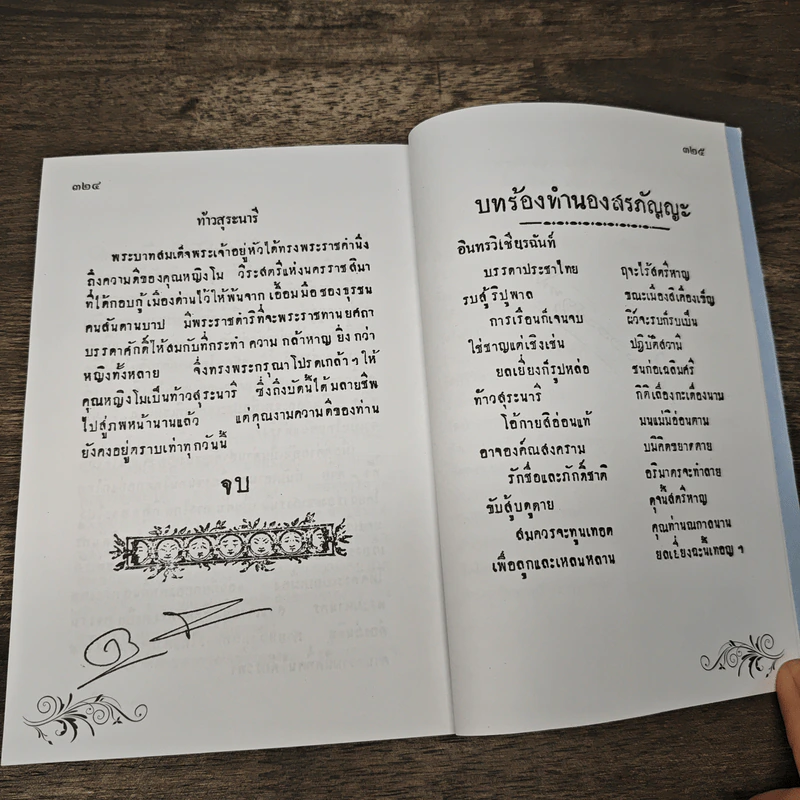 ๓๒๔
ท้าวสุระนารี
พระบาทสมเด็จพระเจ้าอยู่หัวได้ทรงพระราชคำนึง
ถึงความดีของคุณหญิงโม วีระสตรีแห่งนครราชสีมา
ที่ได้กอบกู้เมืองด่านไว้ให้พ้นจาก เอื้อมมือของขุรชน
คนสันดานบาป มีพระราชดำริที่จะพระราชทานยศถา
บรรดาศักดิ์ให้สมกับที่กระทำ ความ กล้าหาญ ยิ่ง กว่า
หญิงทั้งหลาย จึ่งทรงพระกรุณาโปรดเกล้า ฯ ให้
คุณหญิงโมเป็นท้าวสุระนารี ซึ่งถึงบัดนี้ได้มลายชีพ
ไปสู่ภพหน้านานแล้ว แต่คุณงามความดีของท่าน
ยังคงอยู่ตราบเท่าทุกวันนี้
จบ
๓๒๕
บทร้องทำนองสรภัญญะ
อินทรวิเชียรฉันท์
บรรดาประชาไทย ฤจะไร้สตรีหาญ
รบสู้ริปูพาล ขณะเมืองสิเคืองเข็ญ
การเรือนก็เจนจบ ผิว์จะรบก็รบเป็น
ใช่ชาญแต่เชิงเช่น ปฏิบัติสวามี
ยลเยี่ยงก็รูปหล่อ ชนก่อเฉลิมศรี
ท้าวสุระนารี กิติเลื่องกะเดื่องนาม
โอ้กายสิอ่อนแท้ มนแม่มิอ่อนตาม
อาจองค์ณสงคราม บมิคิดขยาดตาย
รักชื่อและภักดิ์ชาติ อริมาตรจะทำลาย
ขับสู้บดูดาย ดุจนี้สตรีหาญ
สมควรจะทูนเทอด คุณท่านณกาลนาน
เพื่อลูกและเหลนหลาน ยลเยี่ยงฉะนั้นเทอญ ฯ